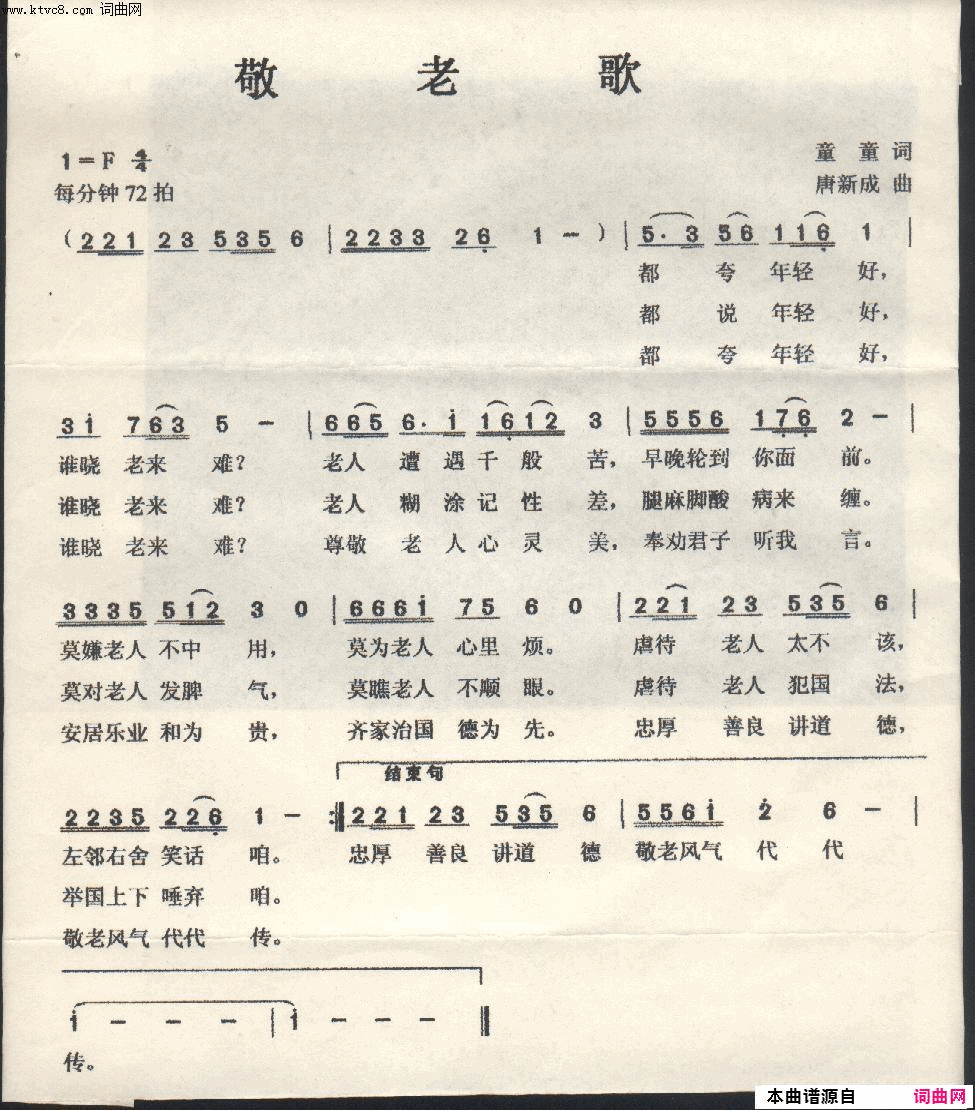 www.ktvc8.com 词曲网
敬 老 歌
1=F 4/4
童 童 词
每分钟72拍
唐新成 曲
(2 2 1 2 3 5 3 5 6 | 2 2 3 3 2 6 1 - ) | 5· 3 5 6 1 1 6 1 |
都 夸 年轻 好,
都 说 年轻 好,
都 夸 年轻 好,
3 i 7 6 3 5 - | 6 6 5 6· i 1 6 1 2 3 | 5 5 5 6 1 7 6 2 - |
谁晓 老来 难? 老人 遭 遇 千 般 苦, 早晚轮到 你面 前。
谁晓 老来 难? 老人 糊 涂 记 性 差, 腿麻脚酸 病来 缠。
谁晓 老来 难? 尊敬 老 人 心 灵 美, 奉劝君子 听我 言。
3 3 3 5 5 1 2 3 0 | 6 6 6 i 7 5 6 0 | 2 2 1 2 3 5 3 5 6 |
莫嫌老人 不中 用, 莫为老人 心里 烦。 虐待 老人 太不 该,
莫对老人 发脾 气, 莫瞧老人 不顺 眼。 虐待 老人 犯国 法,
安居乐业 和为 贵, 齐家治国 德为 先。 忠厚 善良 讲道 德,
结束句
2 2 3 5 2 2 6 1 - :‖ 2 2 1 2 3 5 3 5 6 | 5 5 6 i 2 6 - |
左邻右舍 笑话 咱。 忠厚 善良 讲道 德 敬老风气 代 代
举国上下 唾弃 咱。
敬老风气 代代 传。
i - - - | i - - - ‖
传。
本曲谱源自 词曲网